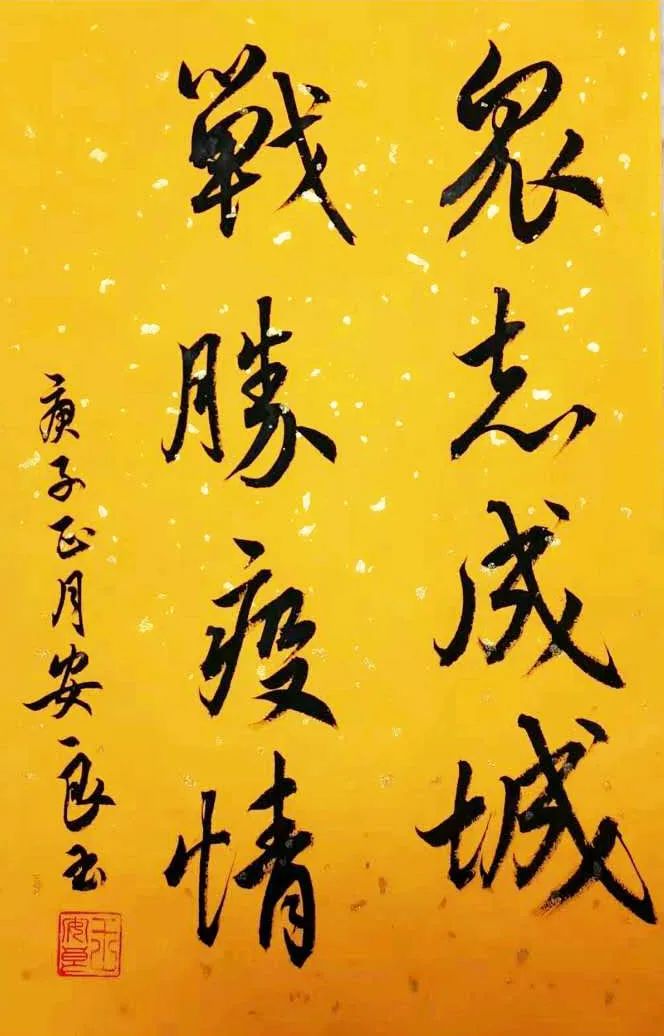 眾志成城
戰勝疫情
庚子正月安良书